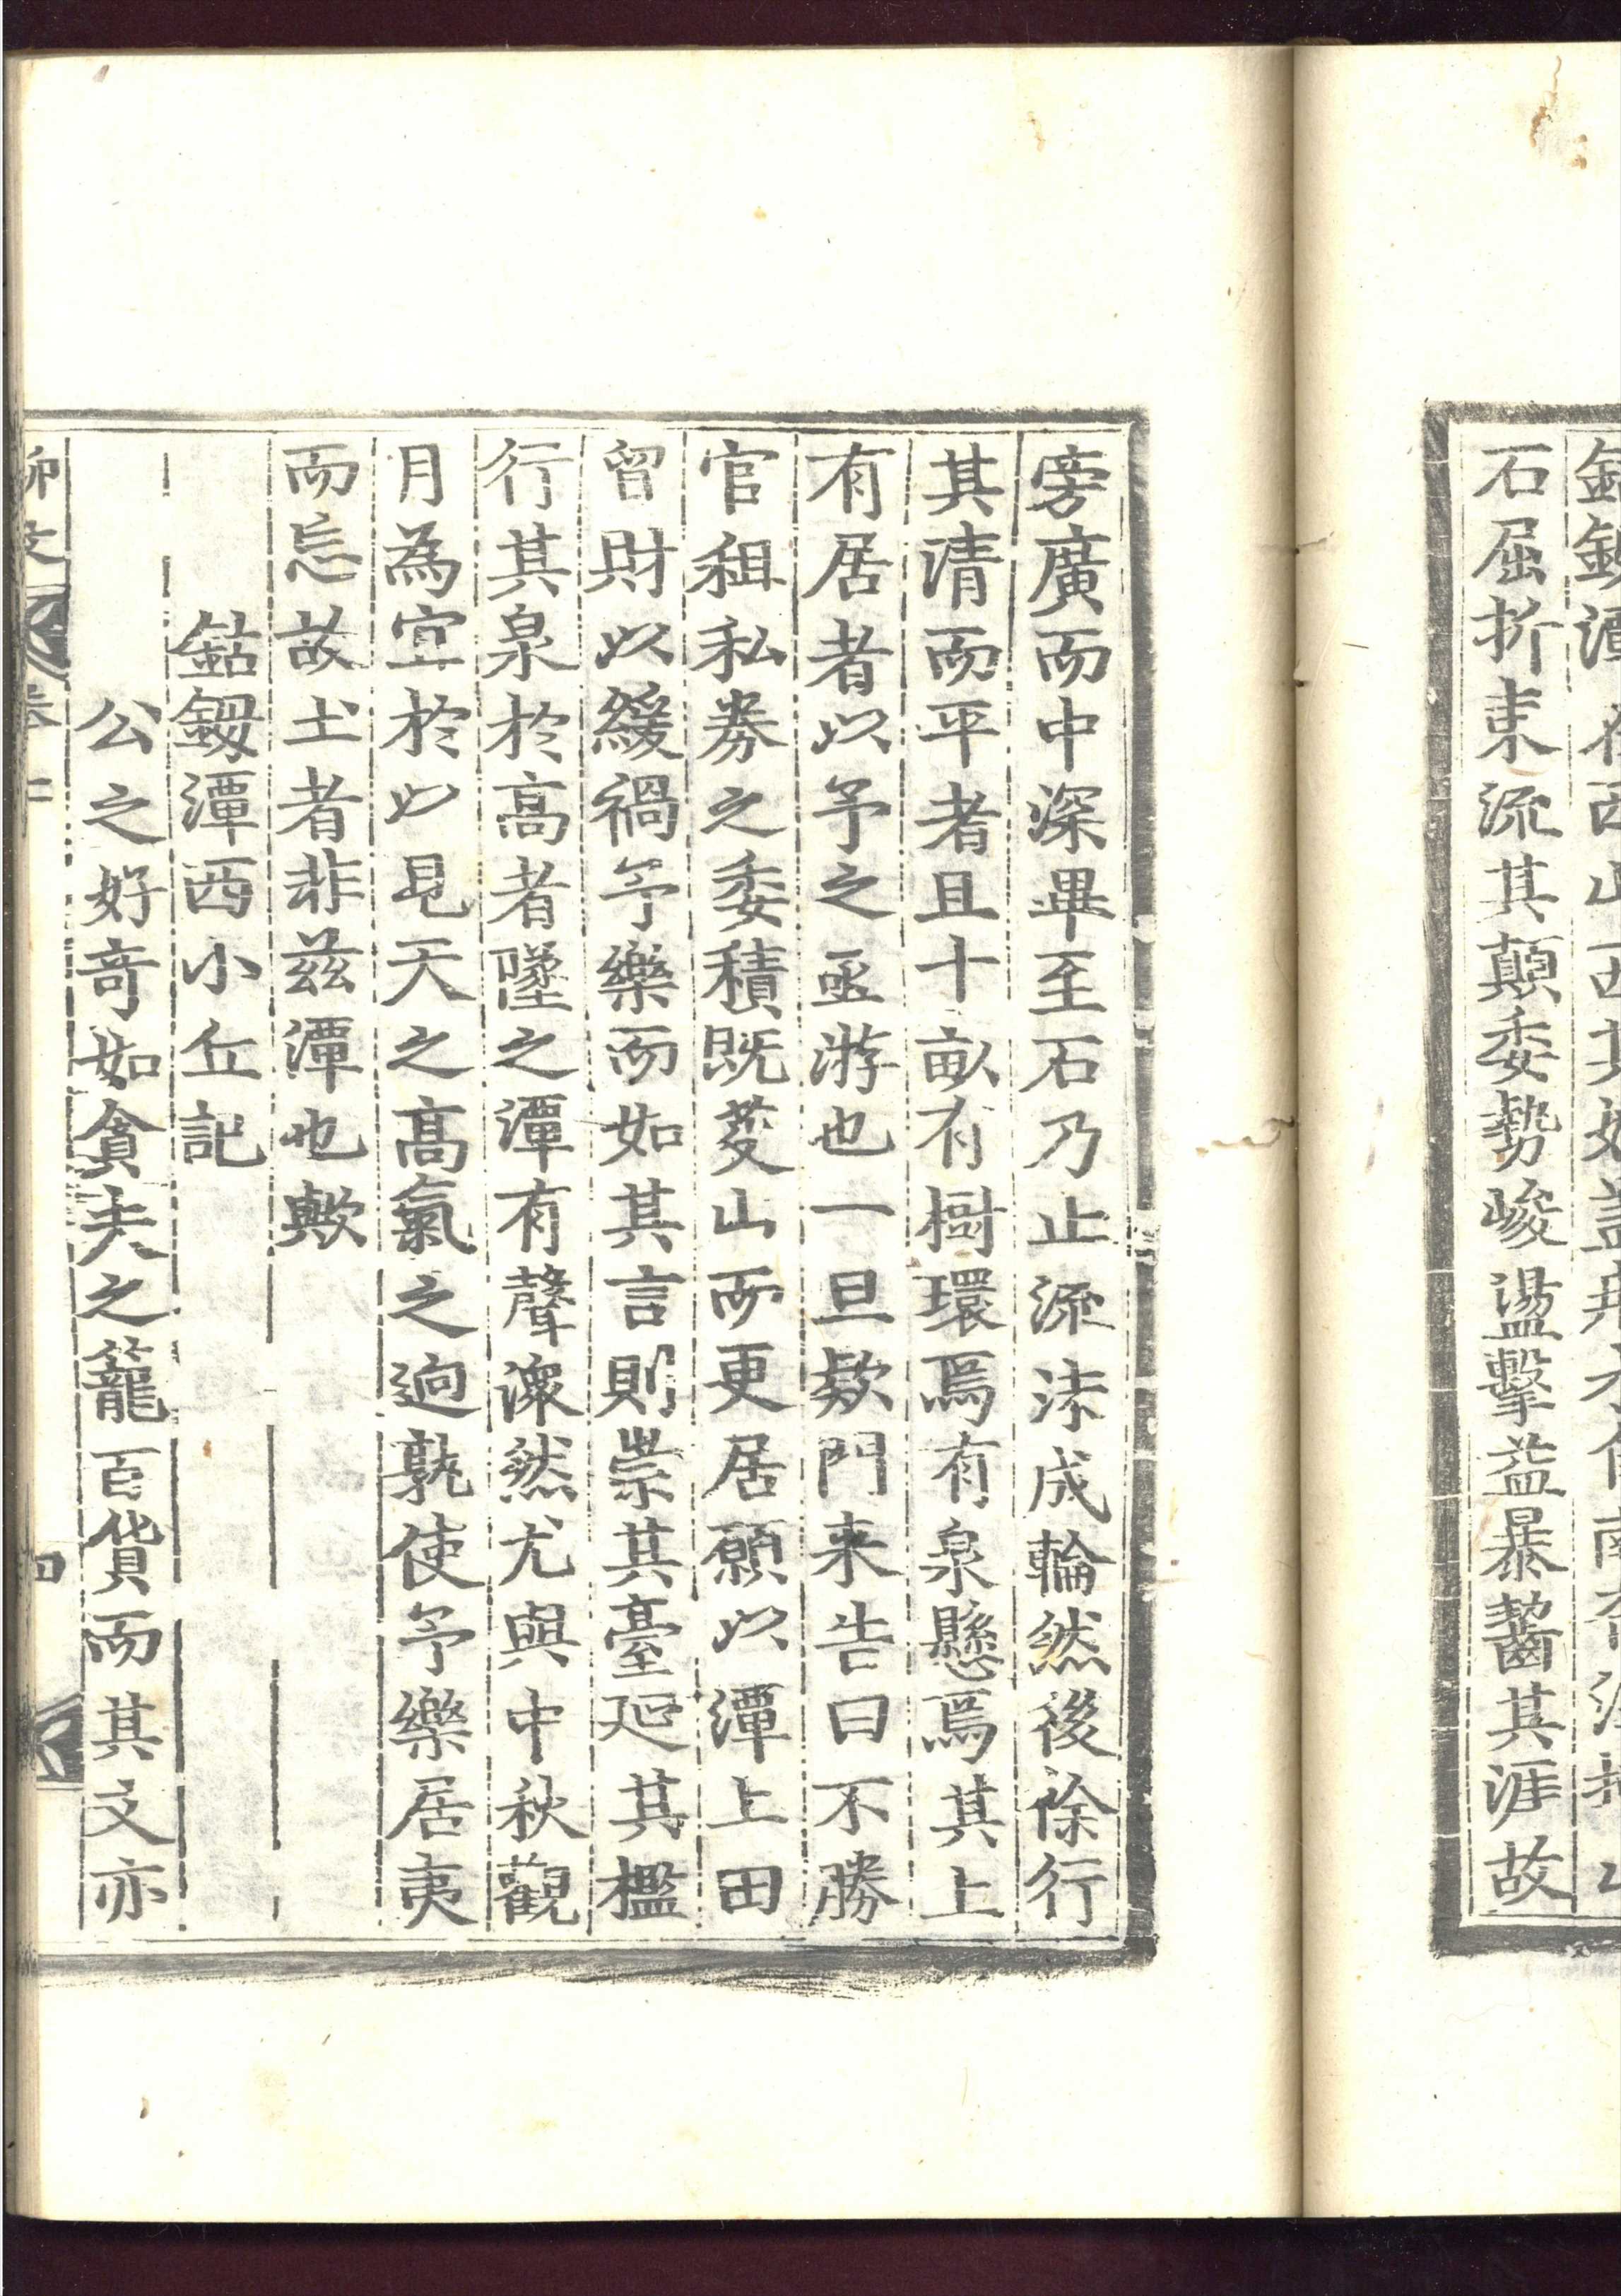 鈷鉧潭在西山西其始蓋冉水自南奔注抵山
石屈折東流其顛委勢峻盪擊益暴齧其涯故
旁廣而中深畢至石乃止流沫成輪然後徐行
其清而平者且十畝有樹環焉有泉懸焉其上
有居者以予之亟游也一旦欵門来告曰不勝
官租私券之委積既芟山而更居願以潭上田
留財以緩禍予樂而如其言則崇其臺延其檻
行其泉於高者墜之潭有聲潨然尤與中秋觀
月為宜於以見天之高氣之逈孰使予樂居夷
而忘故土者非茲潭也歟
鈷鉧潭西小丘記
公之好竒如貪夫之籠百貨而其文亦
柳文 卷 四